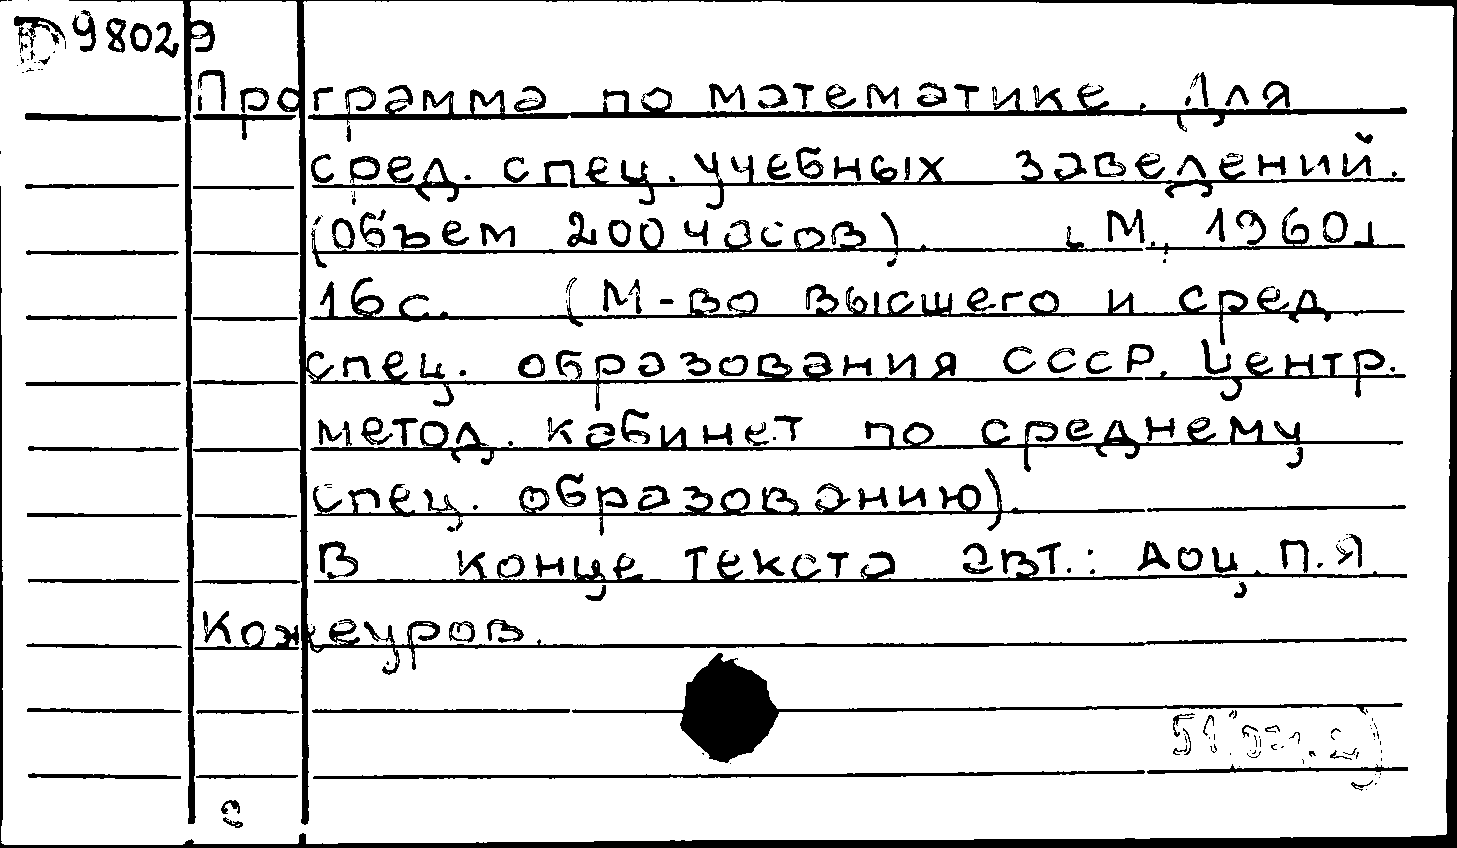 D 98029
Программа по математике. Для
сред. спец. учебных заведений.
(Объем 200 часов). [М., 1960]
16 с. (М-во высшего и сред
спец. образования СССР. Центр.
метод. кабинет по среднему
спец. образованию).
В конце текста авт.: Доц. П.Я.
Кожеуров.